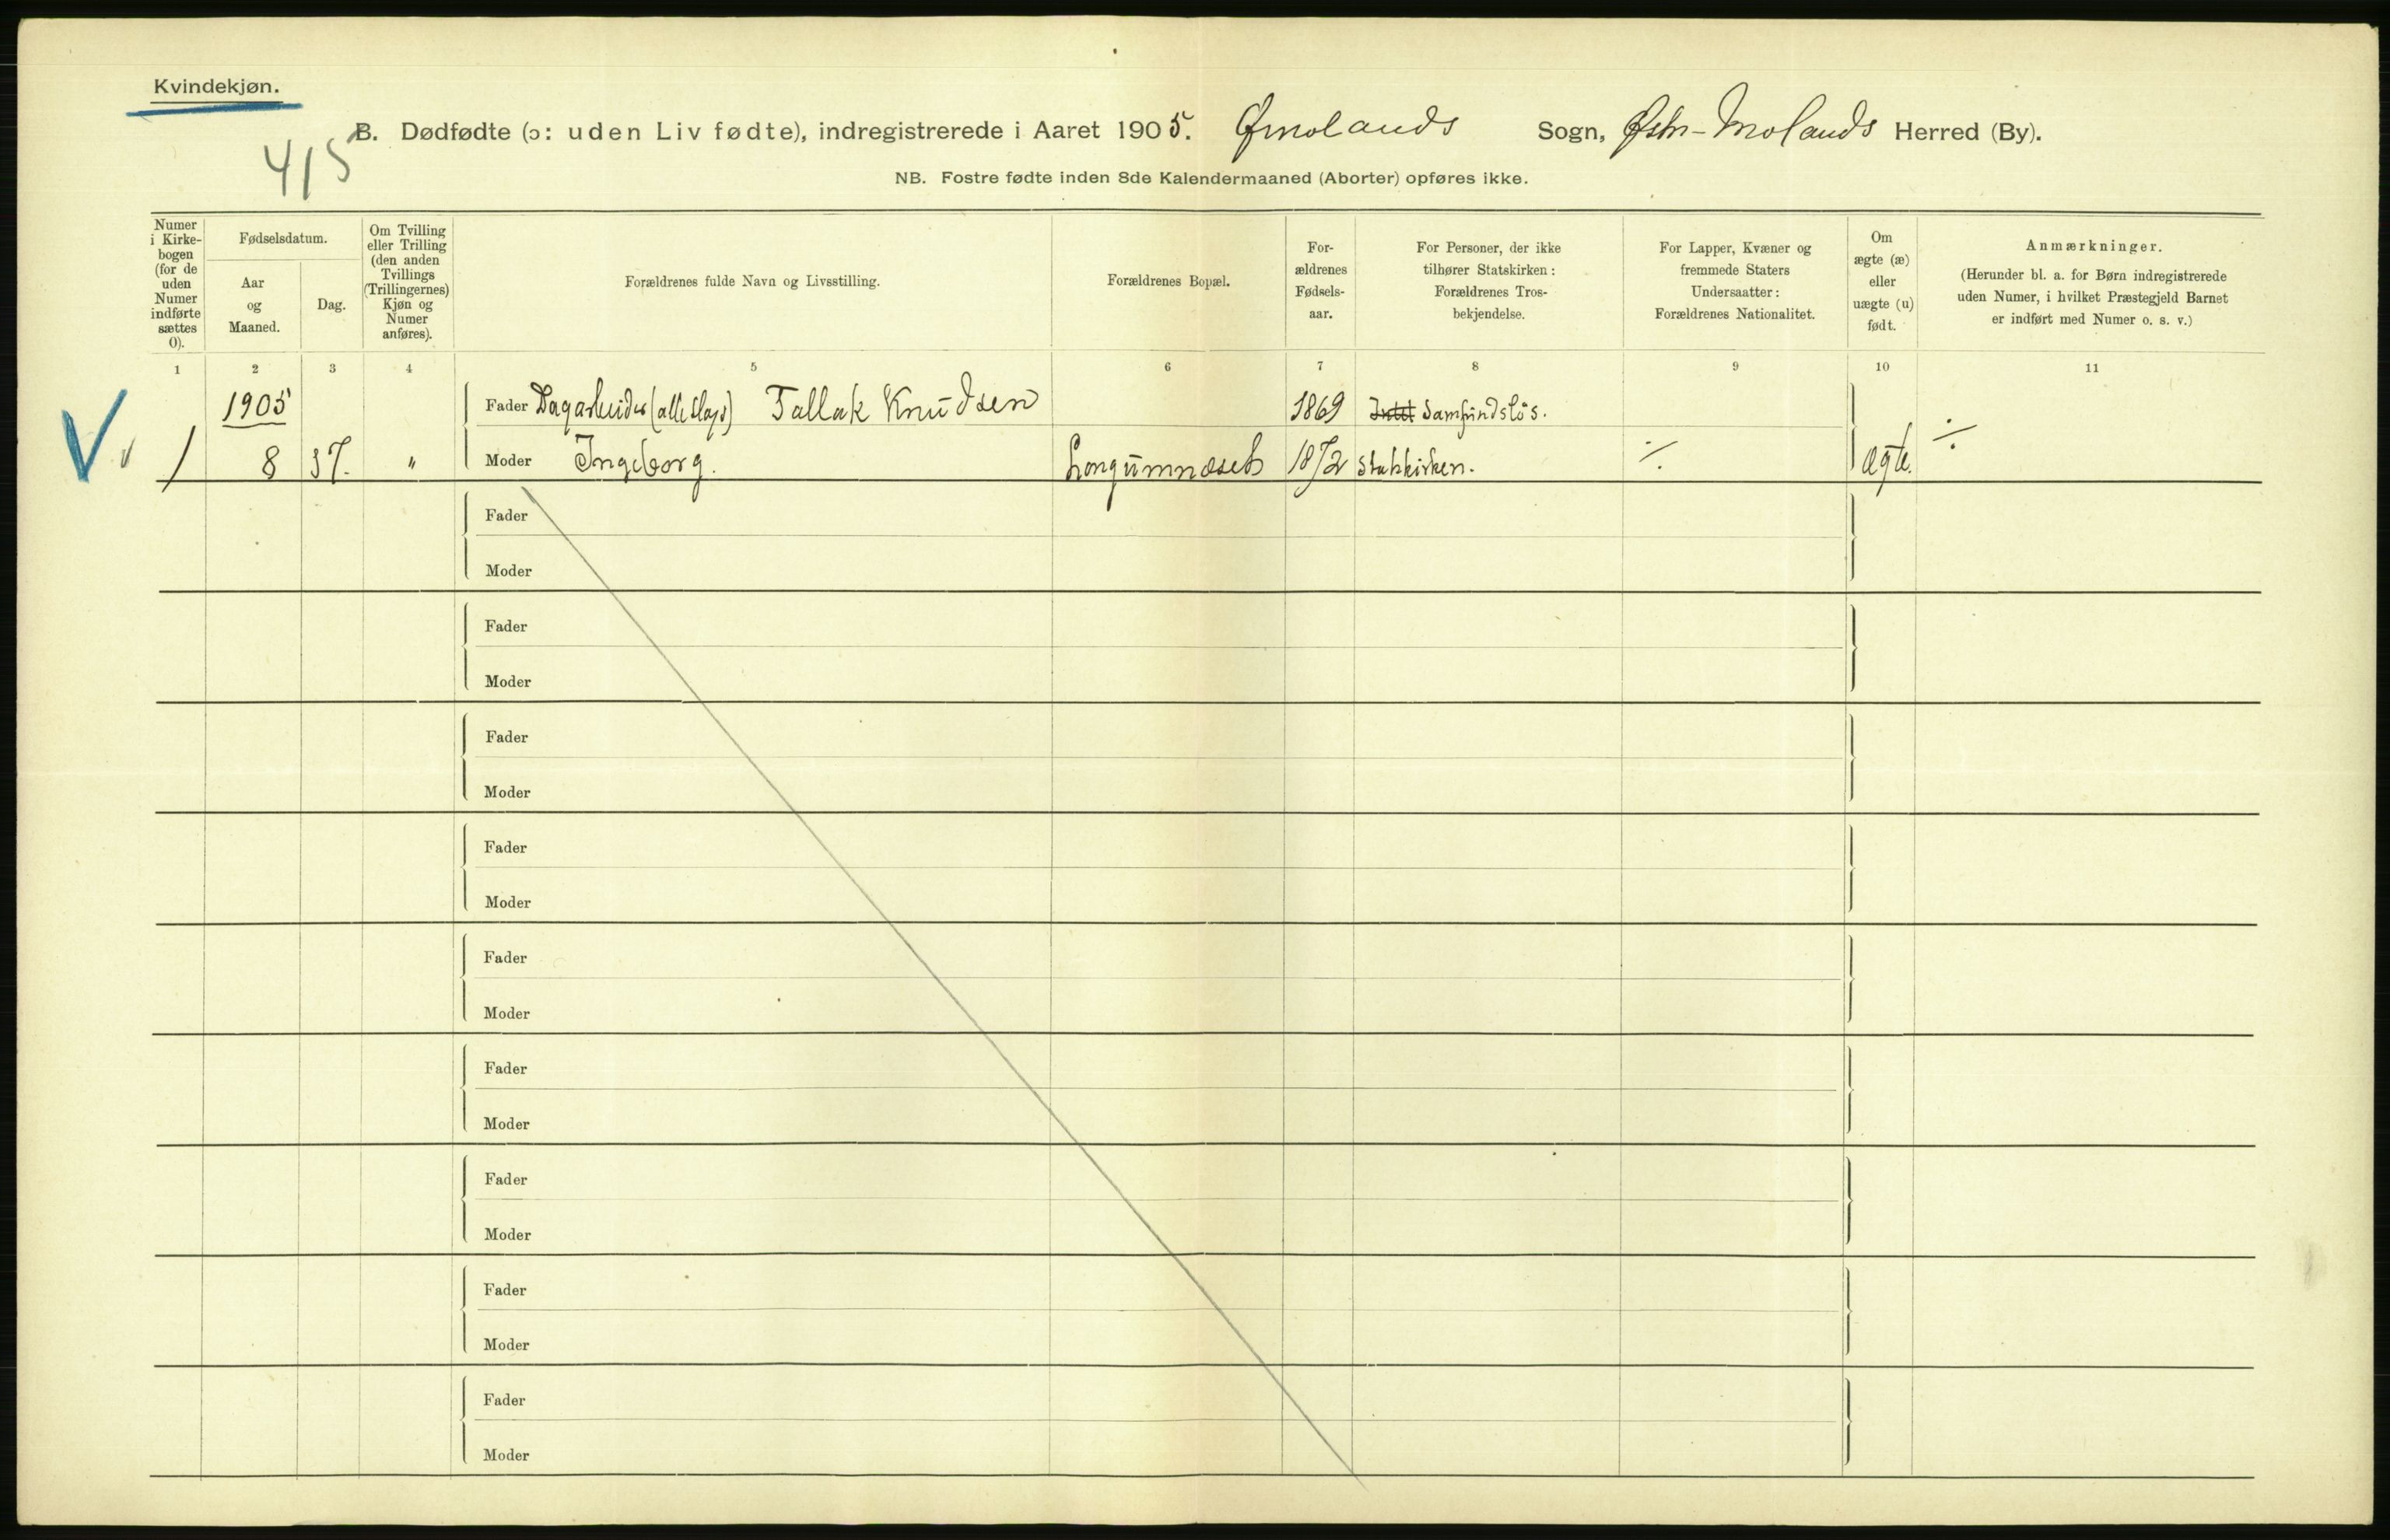 Kvindekjøn.
415
B. Dødfødte (ɔ: uden Liv fødte), indregistrerede i Aaret 1905. Ømolands Sogn, Østr-Molands Herred (By).
NB. Fostre fødte inden 8de Kalendermaaned (Aborter) opføres ikke.
Numer
i Kirke-
bogen
(for de
uden
Numer
indførte
sættes
0).
Fødselsdatum.
Aar
og
Maaned.
Dag.
Om Tvilling
eller Trilling
(den anden
Tvillings
(Trillingernes)
Kjøn og
Numer
anføres).
Forældrenes fulde Navn og Livsstilling.
Forældrenes Bopæl.
For-
ældrenes
Fødsels-
aar.
For Personer, der ikke
tilhører Statskirken:
Forældrenes Tros-
bekjendelse.
For Lapper, Kvæner og
fremmede Staters
Undersaatter:
Forældrenes Nationalitet.
Om
ægte (æ)
eller
uægte (u)
født.
Anmærkninger.
(Herunder bl. a. for Børn indregistrerede
uden Numer, i hvilket Præstegjeld Barnet
er indført med Numer o. s. v.)
1 2 3 4 5 6 7 8 9 10 11
1905 Fader Dagarbeider (alleslags) Tallak Knudsen 1869 Samfundsløs.
1 8 37. " Moder Ingeborg. Longumnæset 1872 Statskirken. ÷ ægte. ÷
Fader
Moder
Fader
Moder
Fader
Moder
Fader
Moder
Fader
Moder
Fader
Moder
Fader
Moder
Fader
Moder
Fader
Moder